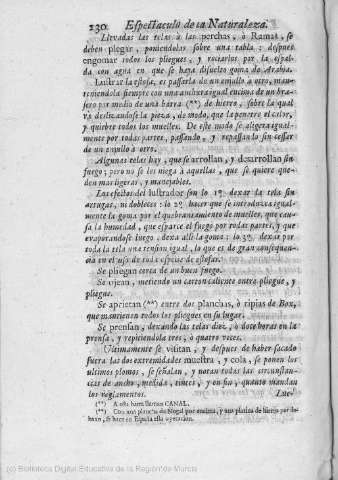 230. Espectaculo de la Naturaleza.
Llevadas las telas à las perchas, ò Ramas, se
deben plegar, poniendolas sobre una tabla: despues
engomar todos los pliegues, y rociarlos por la espal-
da con agua en que se haya disuelto goma de Arabia.
Lustrar la estofa, es passarla de un ensullo à otro, man-
teniendola siempre con una anchura igual encima de un bra-
sero por medio de una barra (**) de hierro, sobre la qual
và deslizandose la pieza, de modo, que la penetre el calor,
y quiebre todos los muelles. De este modo se aligera igual-
mente por todas partes, passando, y repassando sin cessar
de un ensullo à otro.
Algunas telas hay, que se arrollan, y desarrollan sin
fuego; pero no se les niega à aquellas, que se quiere que-
den mas ligeras, y manejables.
Los efectos del lustrador son lo 1º dexar la tela sin
arrugas, ni dobleces: lo 2º hacer que se introduzca igual-
mente la goma por el quebrantamiento de muelles, que cau-
sa la humedad, que esparce el fuego por todas partes, y que
evaporandose luego, dexa alli la goma: lo 3º dexar por
toda la tela una tension igual, lo que es de gran consequen-
cia en el uso de toda especie de estofas.
Se pliegan cerca de un buen fuego.
Se ojean, metiendo un carton caliente entre pliegue, y
pliegue.
Se aprietan (**) entre dos planchas, ò ripias de Box,
que mantienen todos los pliegues en su lugar.
Se prensan, dexando las telas diez, ò doce horas en la
prensa, y repitiendola tres, ò quatro veces.
Ultimamente se visitan, y despues de haber sacado
fuera las dos extremidades muestra, y cola, se ponen los
ultimos plomos, se señalan, y notan todas las circunstan-
cias de ancho, medida, tintes, y en fin, quanto mandan
los reglamentos.
Lue-
(**) A esta barra llaman CANAL.
(**) Con una plancha de Nogal por encima, y una platina de hierro por de-
baxo, se hace en España esta operacion.
(c) Biblioteca Digital Educativa de la Región de Murcia